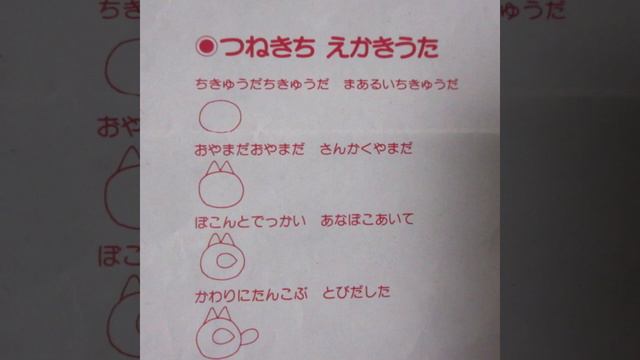 ◉つねきち えかきうた
ちきゅうだちきゅうだ まあるいちきゅうだ
おやまだおやまだ さんかくやまだ
ぽこんとでっかい あなぽこあいて
かわりにたんこぶ とびだした